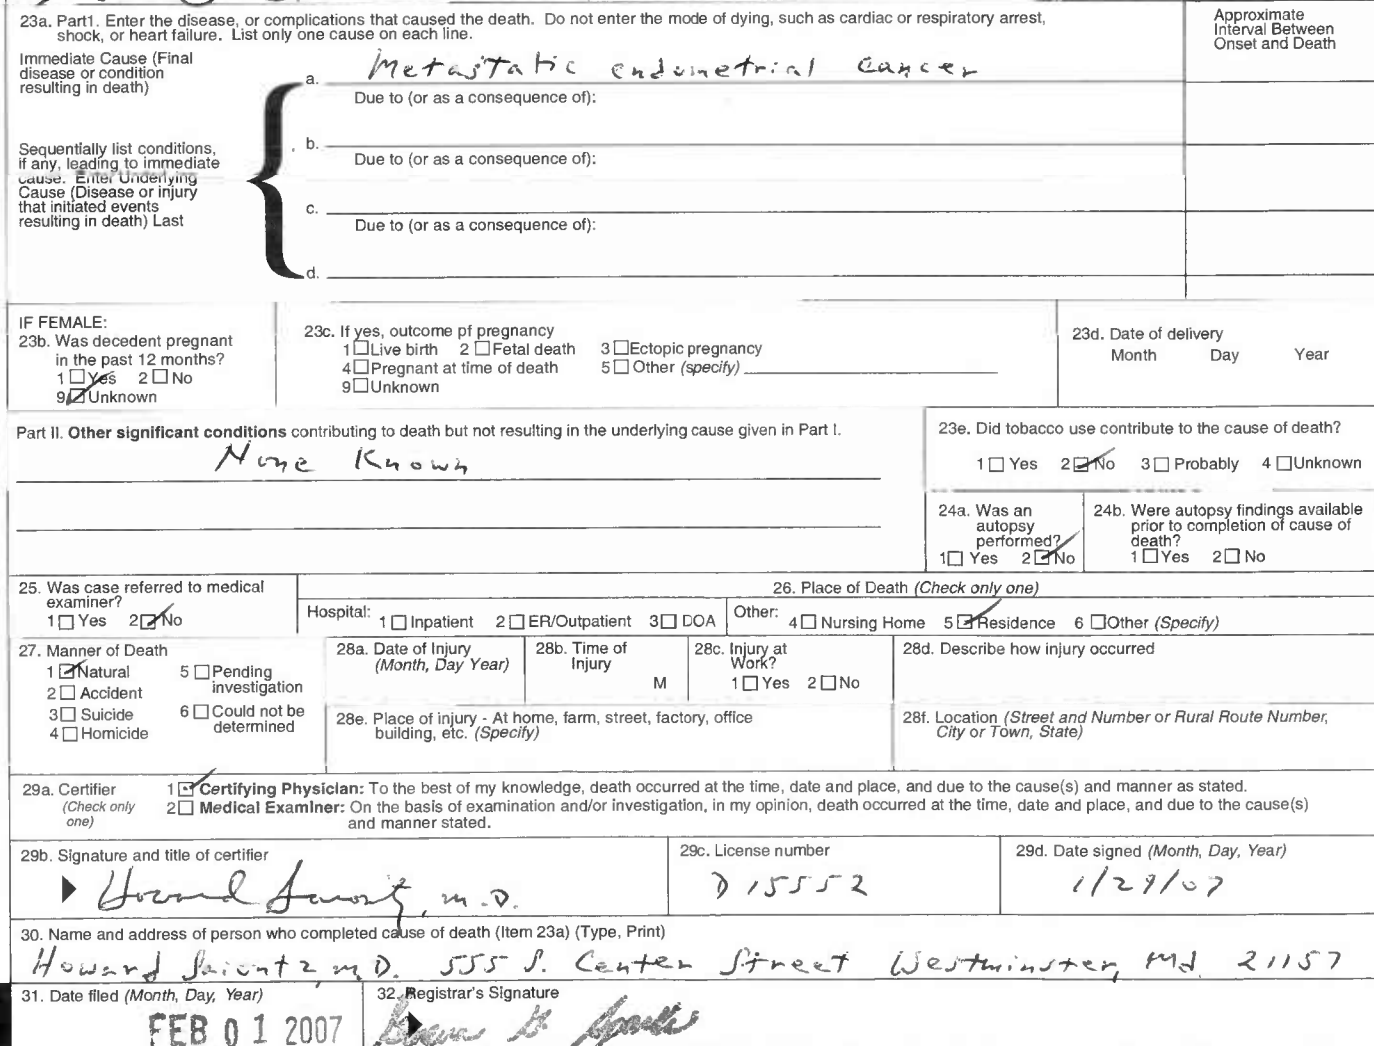 23a. Part1. Enter the disease, or complications that caused the death. Do not enter the mode of dying, such as cardiac or respiratory arrest,
shock, or heart failure. List only one cause on each line.
Approximate
Interval Between
Onset and Death
Immediate Cause (Final
disease or condition
resulting in death)
a. Metastatic endometrial cancer
Due to (or as a consequence of):
Sequentially list conditions,
if any, leading to immediate
cause. Enter Underlying
Cause (Disease or injury
that initiated events
resulting in death) Last
b.
Due to (or as a consequence of):
c.
Due to (or as a consequence of):
d.
IF FEMALE:
23b. Was decedent pregnant
in the past 12 months?
1 Yes 2 No
9 Unknown
23c. If yes, outcome pf pregnancy
1 Live birth 2 Fetal death 3 Ectopic pregnancy
4 Pregnant at time of death 5 Other (specify)
9 Unknown
23d. Date of delivery
Month Day Year
Part II. Other significant conditions contributing to death but not resulting in the underlying cause given in Part I.
None Known
23e. Did tobacco use contribute to the cause of death?
1 Yes 2 No 3 Probably 4 Unknown
24a. Was an
autopsy
performed?
1 Yes 2 No
24b. Were autopsy findings available
prior to completion of cause of
death?
1 Yes 2 No
25. Was case referred to medical
examiner?
1 Yes 2 No
26. Place of Death (Check only one)
Hospital: 1 Inpatient 2 ER/Outpatient 3 DOA Other: 4 Nursing Home 5 Residence 6 Other (Specify)
27. Manner of Death
1 Natural 5 Pending
investigation
2 Accident
3 Suicide 6 Could not be
determined
4 Homicide
28a. Date of Injury
(Month, Day Year)
28b. Time of
Injury
M
28c. Injury at
Work?
1 Yes 2 No
28d. Describe how injury occurred
28e. Place of injury - At home, farm, street, factory, office
building, etc. (Specify)
28f. Location (Street and Number or Rural Route Number,
City or Town, State)
29a. Certifier
(Check only
one)
1 Certifying Physician: To the best of my knowledge, death occurred at the time, date and place, and due to the cause(s) and manner as stated.
2 Medical Examiner: On the basis of examination and/or investigation, in my opinion, death occurred at the time, date and place, and due to the cause(s)
and manner stated.
29b. Signature and title of certifier
Howard M.D.
29c. License number
D15552
29d. Date signed (Month, Day, Year)
1/29/07
30. Name and address of person who completed cause of death (Item 23a) (Type, Print)
Howard M.D. 555 S. Center Street Westminster, Md. 21157
31. Date filed (Month, Day, Year)
FEB 01 2007
32. Registrar's Signature